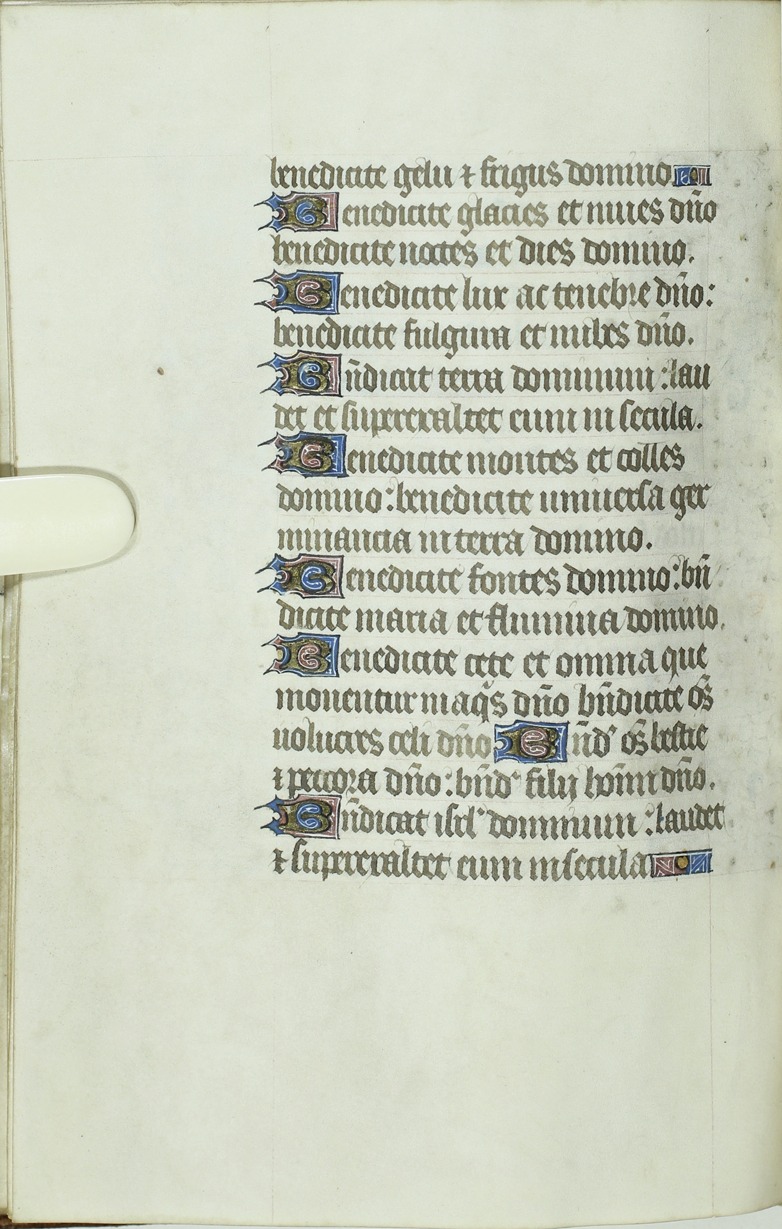 benedicite gelu ⁊ frigus domino
Benedicite glacies et niues dño
benedicite noctes et dies domino.
Benedicite lux ac tenebre dño:
benedicite fulgura et nubes dño.
Bñdicat terra dominum : lau
det et superexaltet eum in secula.
Benedicite montes et colles
domino : benedicite uniuersa ger
minancia in terra domino.
Benedicite fontes domino : bñ
dicite maria et flumina domino.
Benedicite cete et omnia que
mouentur in aqͥs dño bñdicite oẽs
uolucres celi dño Bñdᵉ oẽs bestie
⁊ peccora dño : bñdᵉ filij homĩ dño.
Bñdicat isrl' dominum : laudet
⁊ superexaltet eum in secula